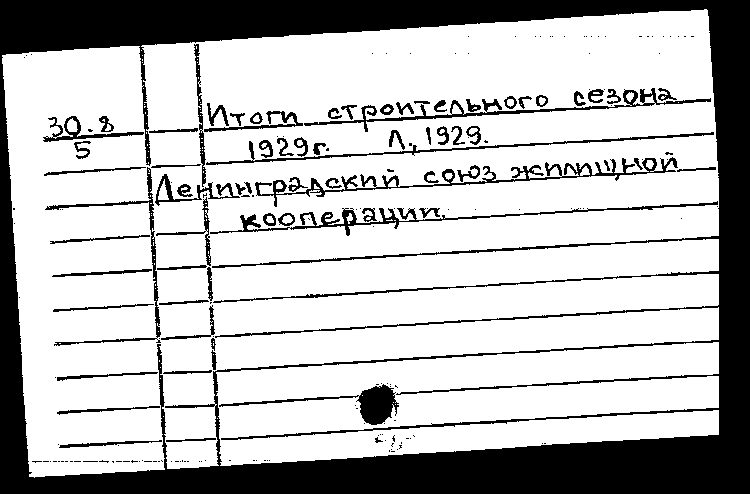 30.8 Итоги строительного сезона
5 1929г. Л., 1929.
Ленинградский союз жилищной
кооперации.